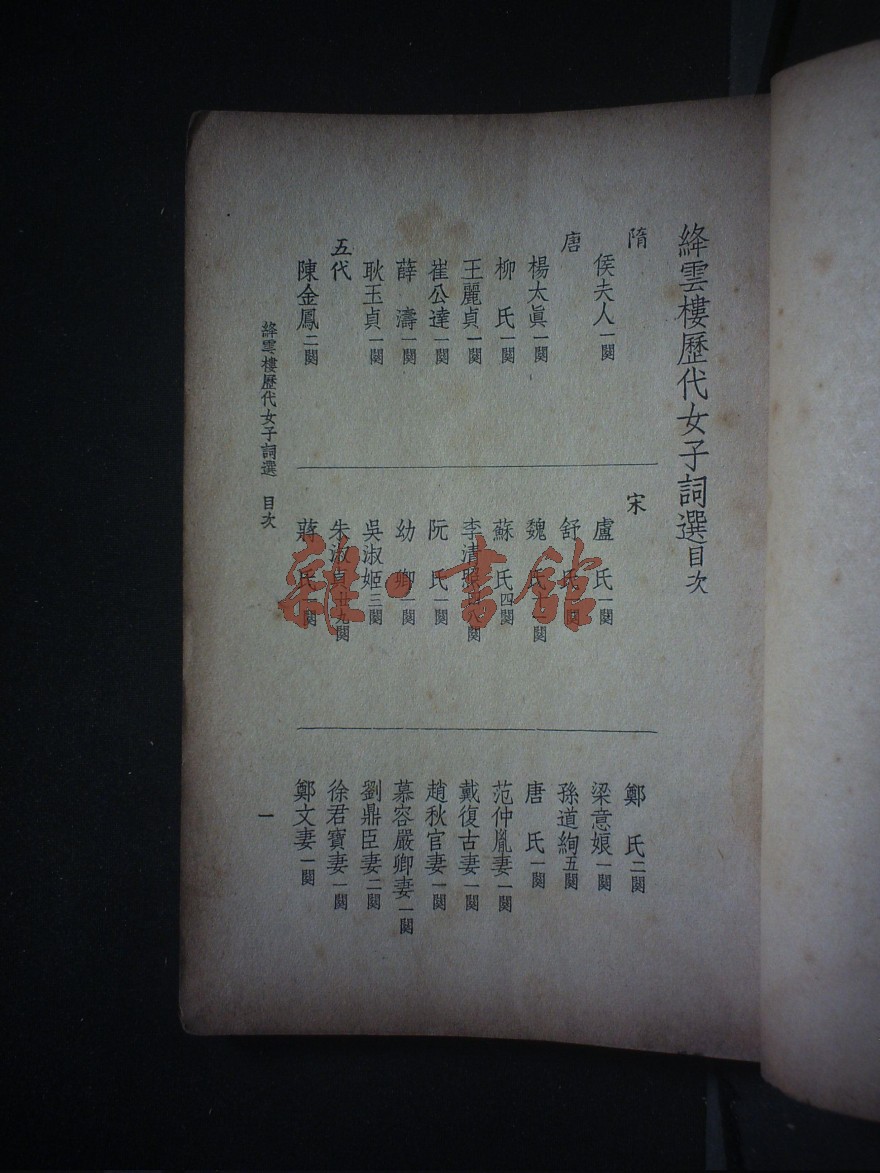 絳雲樓歷代女子詞選目次
隋
侯夫人一闋
唐
楊太眞一闋
柳氏一闋
王麗貞一闋
崔公達一闋
薛濤一闋
耿玉貞一闋
五代
陳金鳳二闋
宋
盧氏一闋
舒氏一闋
魏氏
蘇氏四闋
李清照
阮氏一闋
幼卿一闋
吳淑姬三闋
朱淑貞廿九闋
蔣氏一闋
鄭氏二闋
梁意娘一闋
孫道絢五闋
唐氏一闋
范仲胤妻一闋
戴復古妻一闋
趙秋官妻一闋
慕容嚴卿妻一闋
劉鼎臣妻二闋
徐君寶妻一闋
鄭文妻一闋
絳雲樓歷代女子詞選 目次
一
雜·書館